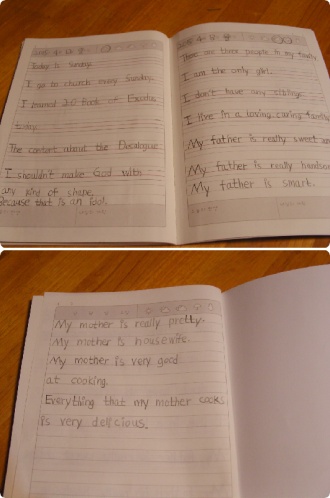 Today is Sunday.
I go to church every Sunday.
I learned 20 Book of Exodus
today.
The content about the Decalogue.
I shouldn't make God with
any kind of shape.
Because that is an idol.
There are three people in my family.
I am the only girl.
I don't have any siblings.
I live in a loving caring family
My father is really sweet and
My father is really handsome
My father is smart.
My mother is really pretty.
My mother is housewife.
My mother is very good
at cooking.
Everything that my mother cooks
is very delicious.